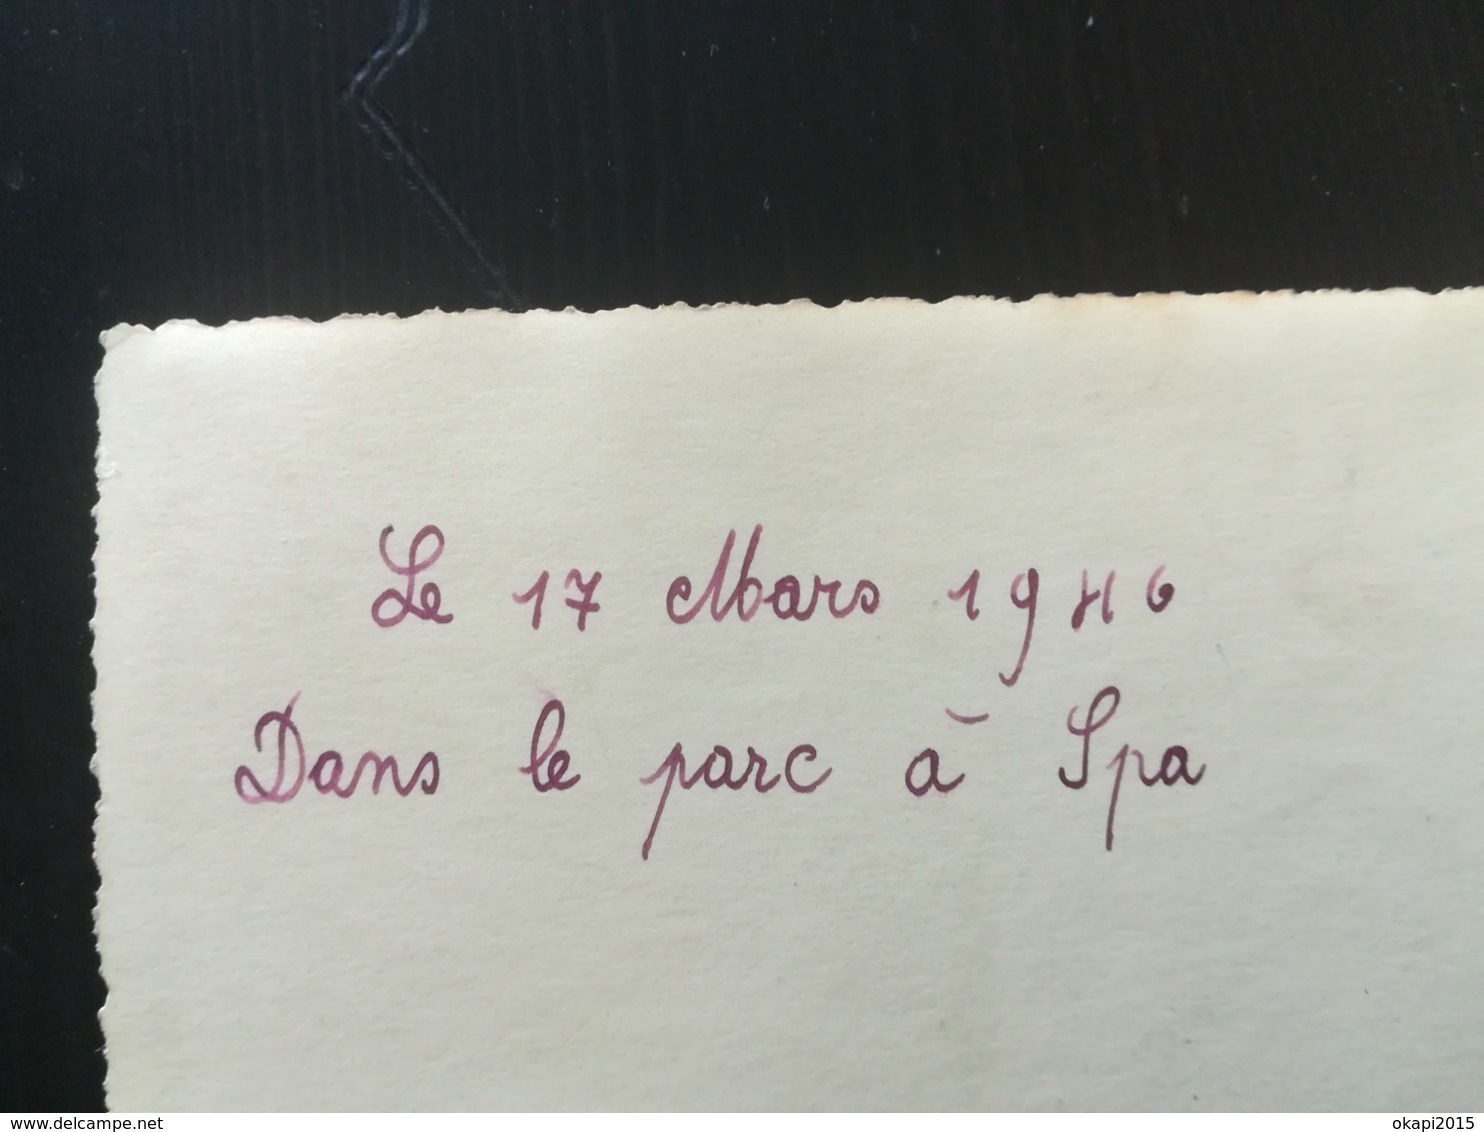 Le 17 Mars 1946
Dans le parc à Spa
delcampe.net
okapi2015